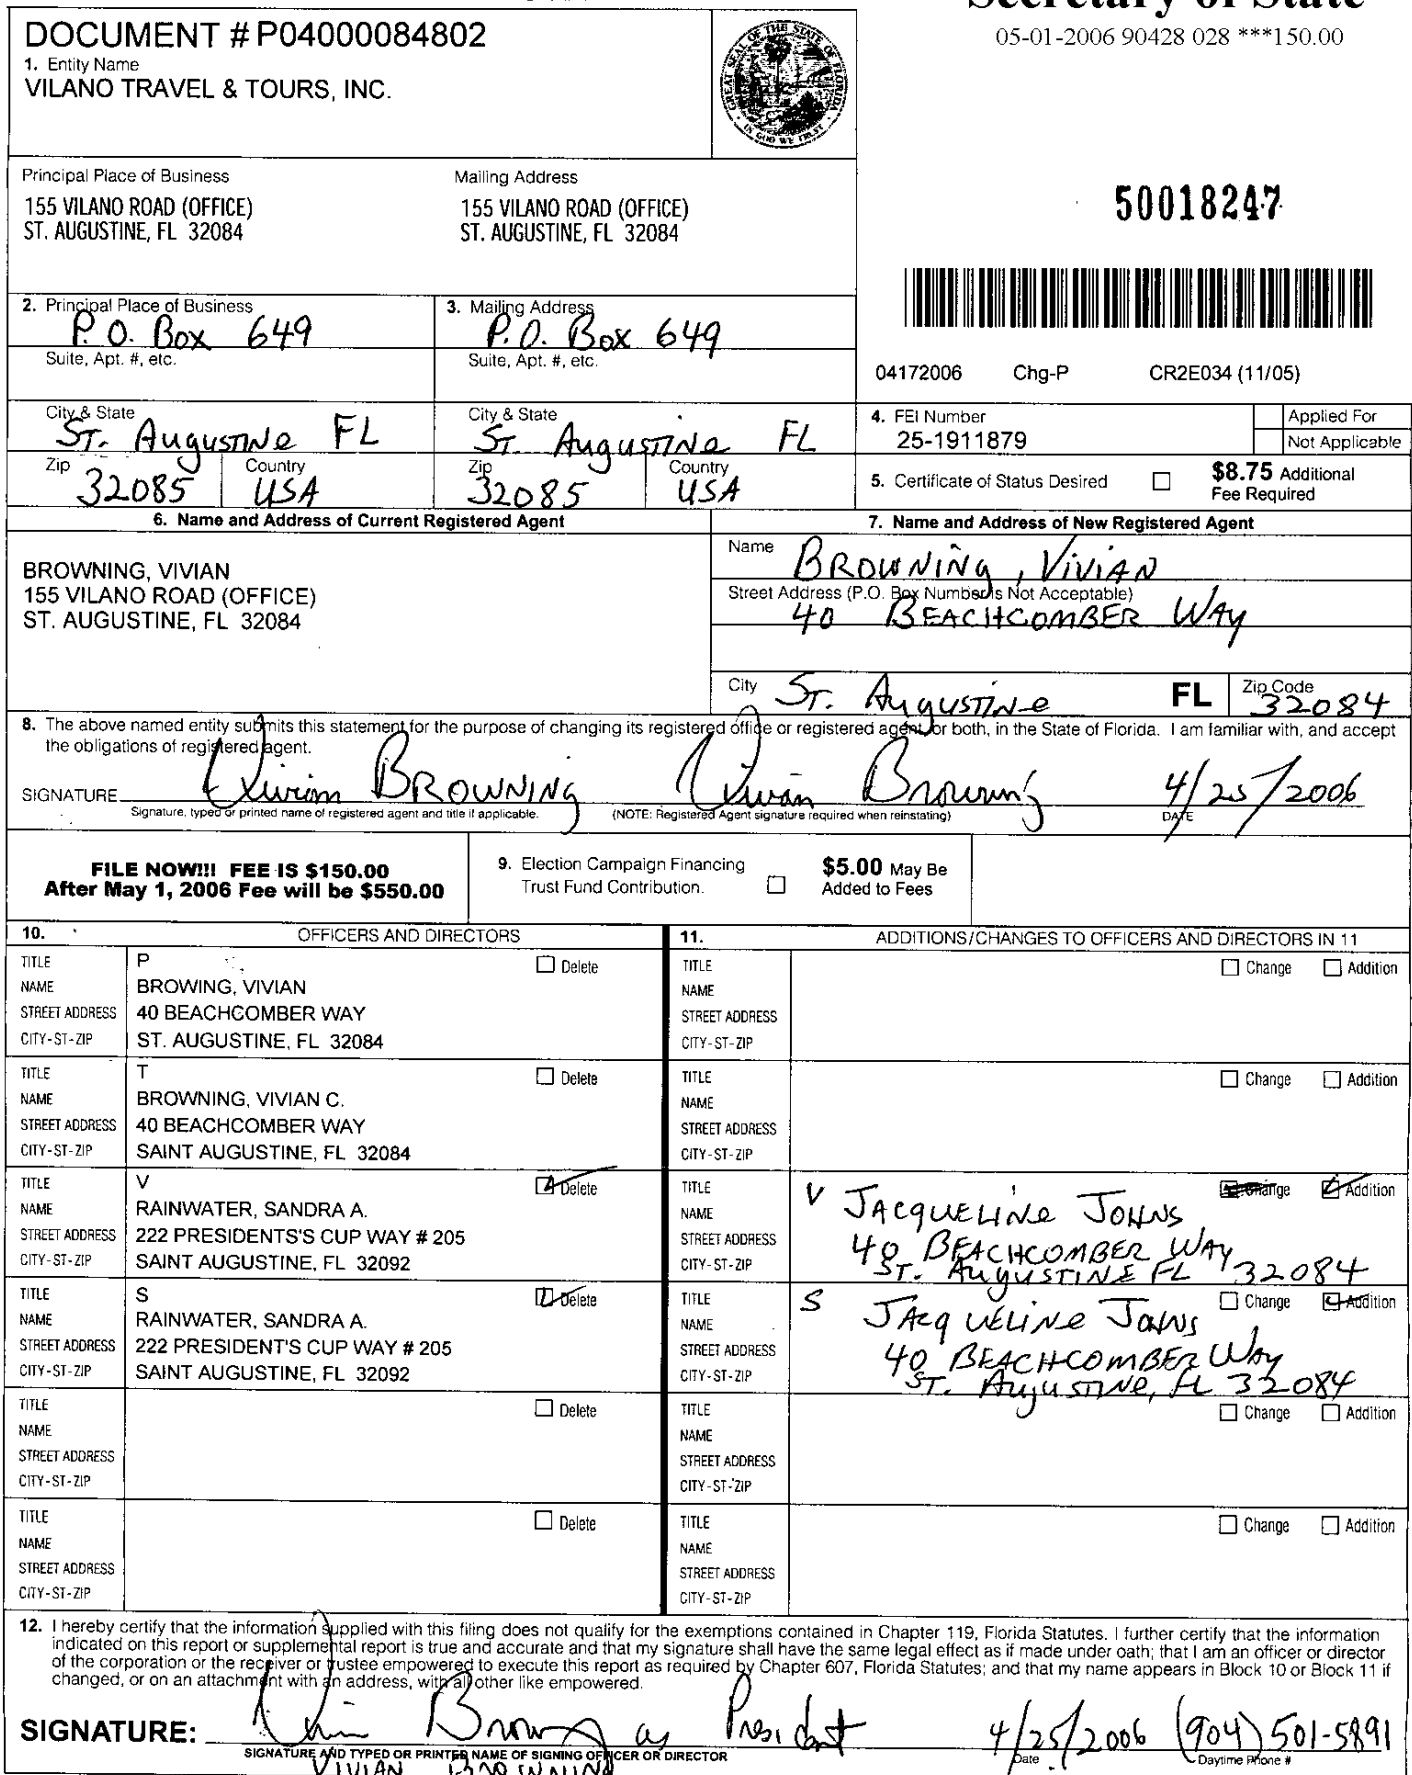 Secretary of State
05-01-2006 90428 028 ***150.00
DOCUMENT # P04000084802
1. Entity Name
VILANO TRAVEL & TOURS, INC.
GREAT SEAL OF THE STATE OF FLORIDA
IN GOD WE TRUST
Principal Place of Business
155 VILANO ROAD (OFFICE)
ST. AUGUSTINE, FL 32084
Mailing Address
155 VILANO ROAD (OFFICE)
ST. AUGUSTINE, FL 32084
50018247
2. Principal Place of Business
P.O. Box 649
Suite, Apt. #, etc.
3. Mailing Address
P.O. Box 649
Suite, Apt. #, etc.
04172006 Chg-P CR2E034 (11/05)
City & State
ST. AugustiNe FL
Zip 32085 Country USA
City & State
ST. AugustiNe FL
Zip 32085 Country USA
4. FEI Number
25-1911879
Applied For
Not Applicable
5. Certificate of Status Desired
$8.75 Additional
Fee Required
6. Name and Address of Current Registered Agent
BROWNING, VIVIAN
155 VILANO ROAD (OFFICE)
ST. AUGUSTINE, FL 32084
7. Name and Address of New Registered Agent
Name BROWNiNg, ViViAN
Street Address (P.O. Box Number is Not Acceptable)
40 BEACHCOMBER WAy
City ST. AugustiNe FL Zip Code 32084
8. The above named entity submits this statement for the purpose of changing its registered office or registered agent, or both, in the State of Florida. I am familiar with, and accept
the obligations of registered agent.
SIGNATURE Vivian BROWNiNg Vivian Browning 4/25/2006
Signature, typed or printed name of registered agent and title if applicable. (NOTE: Registered Agent signature required when reinstating) DATE
FILE NOW!!! FEE IS $150.00
After May 1, 2006 Fee will be $550.00
9. Election Campaign Financing
Trust Fund Contribution.
$5.00 May Be
Added to Fees
10. OFFICERS AND DIRECTORS
TITLE P Delete
NAME BROWING, VIVIAN
STREET ADDRESS 40 BEACHCOMBER WAY
CITY-ST-ZIP ST. AUGUSTINE, FL 32084
TITLE T Delete
NAME BROWNING, VIVIAN C.
STREET ADDRESS 40 BEACHCOMBER WAY
CITY-ST-ZIP SAINT AUGUSTINE, FL 32084
TITLE V Delete
NAME RAINWATER, SANDRA A.
STREET ADDRESS 222 PRESIDENTS'S CUP WAY # 205
CITY-ST-ZIP SAINT AUGUSTINE, FL 32092
TITLE S Delete
NAME RAINWATER, SANDRA A.
STREET ADDRESS 222 PRESIDENT'S CUP WAY # 205
CITY-ST-ZIP SAINT AUGUSTINE, FL 32092
TITLE Delete
NAME
STREET ADDRESS
CITY-ST-ZIP
TITLE Delete
NAME
STREET ADDRESS
CITY-ST-ZIP
11. ADDITIONS/CHANGES TO OFFICERS AND DIRECTORS IN 11
TITLE Change Addition
NAME
STREET ADDRESS
CITY-ST-ZIP
TITLE Change Addition
NAME
STREET ADDRESS
CITY-ST-ZIP
TITLE V Change Addition
NAME JACQUELiNe JOHNS
STREET ADDRESS 40 BEACHCOMBER WAY
CITY-ST-ZIP ST. AugUSTINE FL 32084
TITLE S Change Addition
NAME JACqUELiNe JOHNS
STREET ADDRESS 40 BEACHCOMBER WAy
CITY-ST-ZIP ST. AugustiNe, FL 32084
TITLE Change Addition
NAME
STREET ADDRESS
CITY-ST-ZIP
TITLE Change Addition
NAME
STREET ADDRESS
CITY-ST-ZIP
12. I hereby certify that the information supplied with this filing does not qualify for the exemptions contained in Chapter 119, Florida Statutes. I further certify that the information
indicated on this report or supplemental report is true and accurate and that my signature shall have the same legal effect as if made under oath; that I am an officer or director
of the corporation or the receiver or trustee empowered to execute this report as required by Chapter 607, Florida Statutes; and that my name appears in Block 10 or Block 11 if
changed, or on an attachment with an address, with all other like empowered.
SIGNATURE: Vivian Browning as President 4/25/2006 (904) 501-5891
SIGNATURE AND TYPED OR PRINTED NAME OF SIGNING OFFICER OR DIRECTOR Date Daytime Phone #
VIVIAN BROWNING